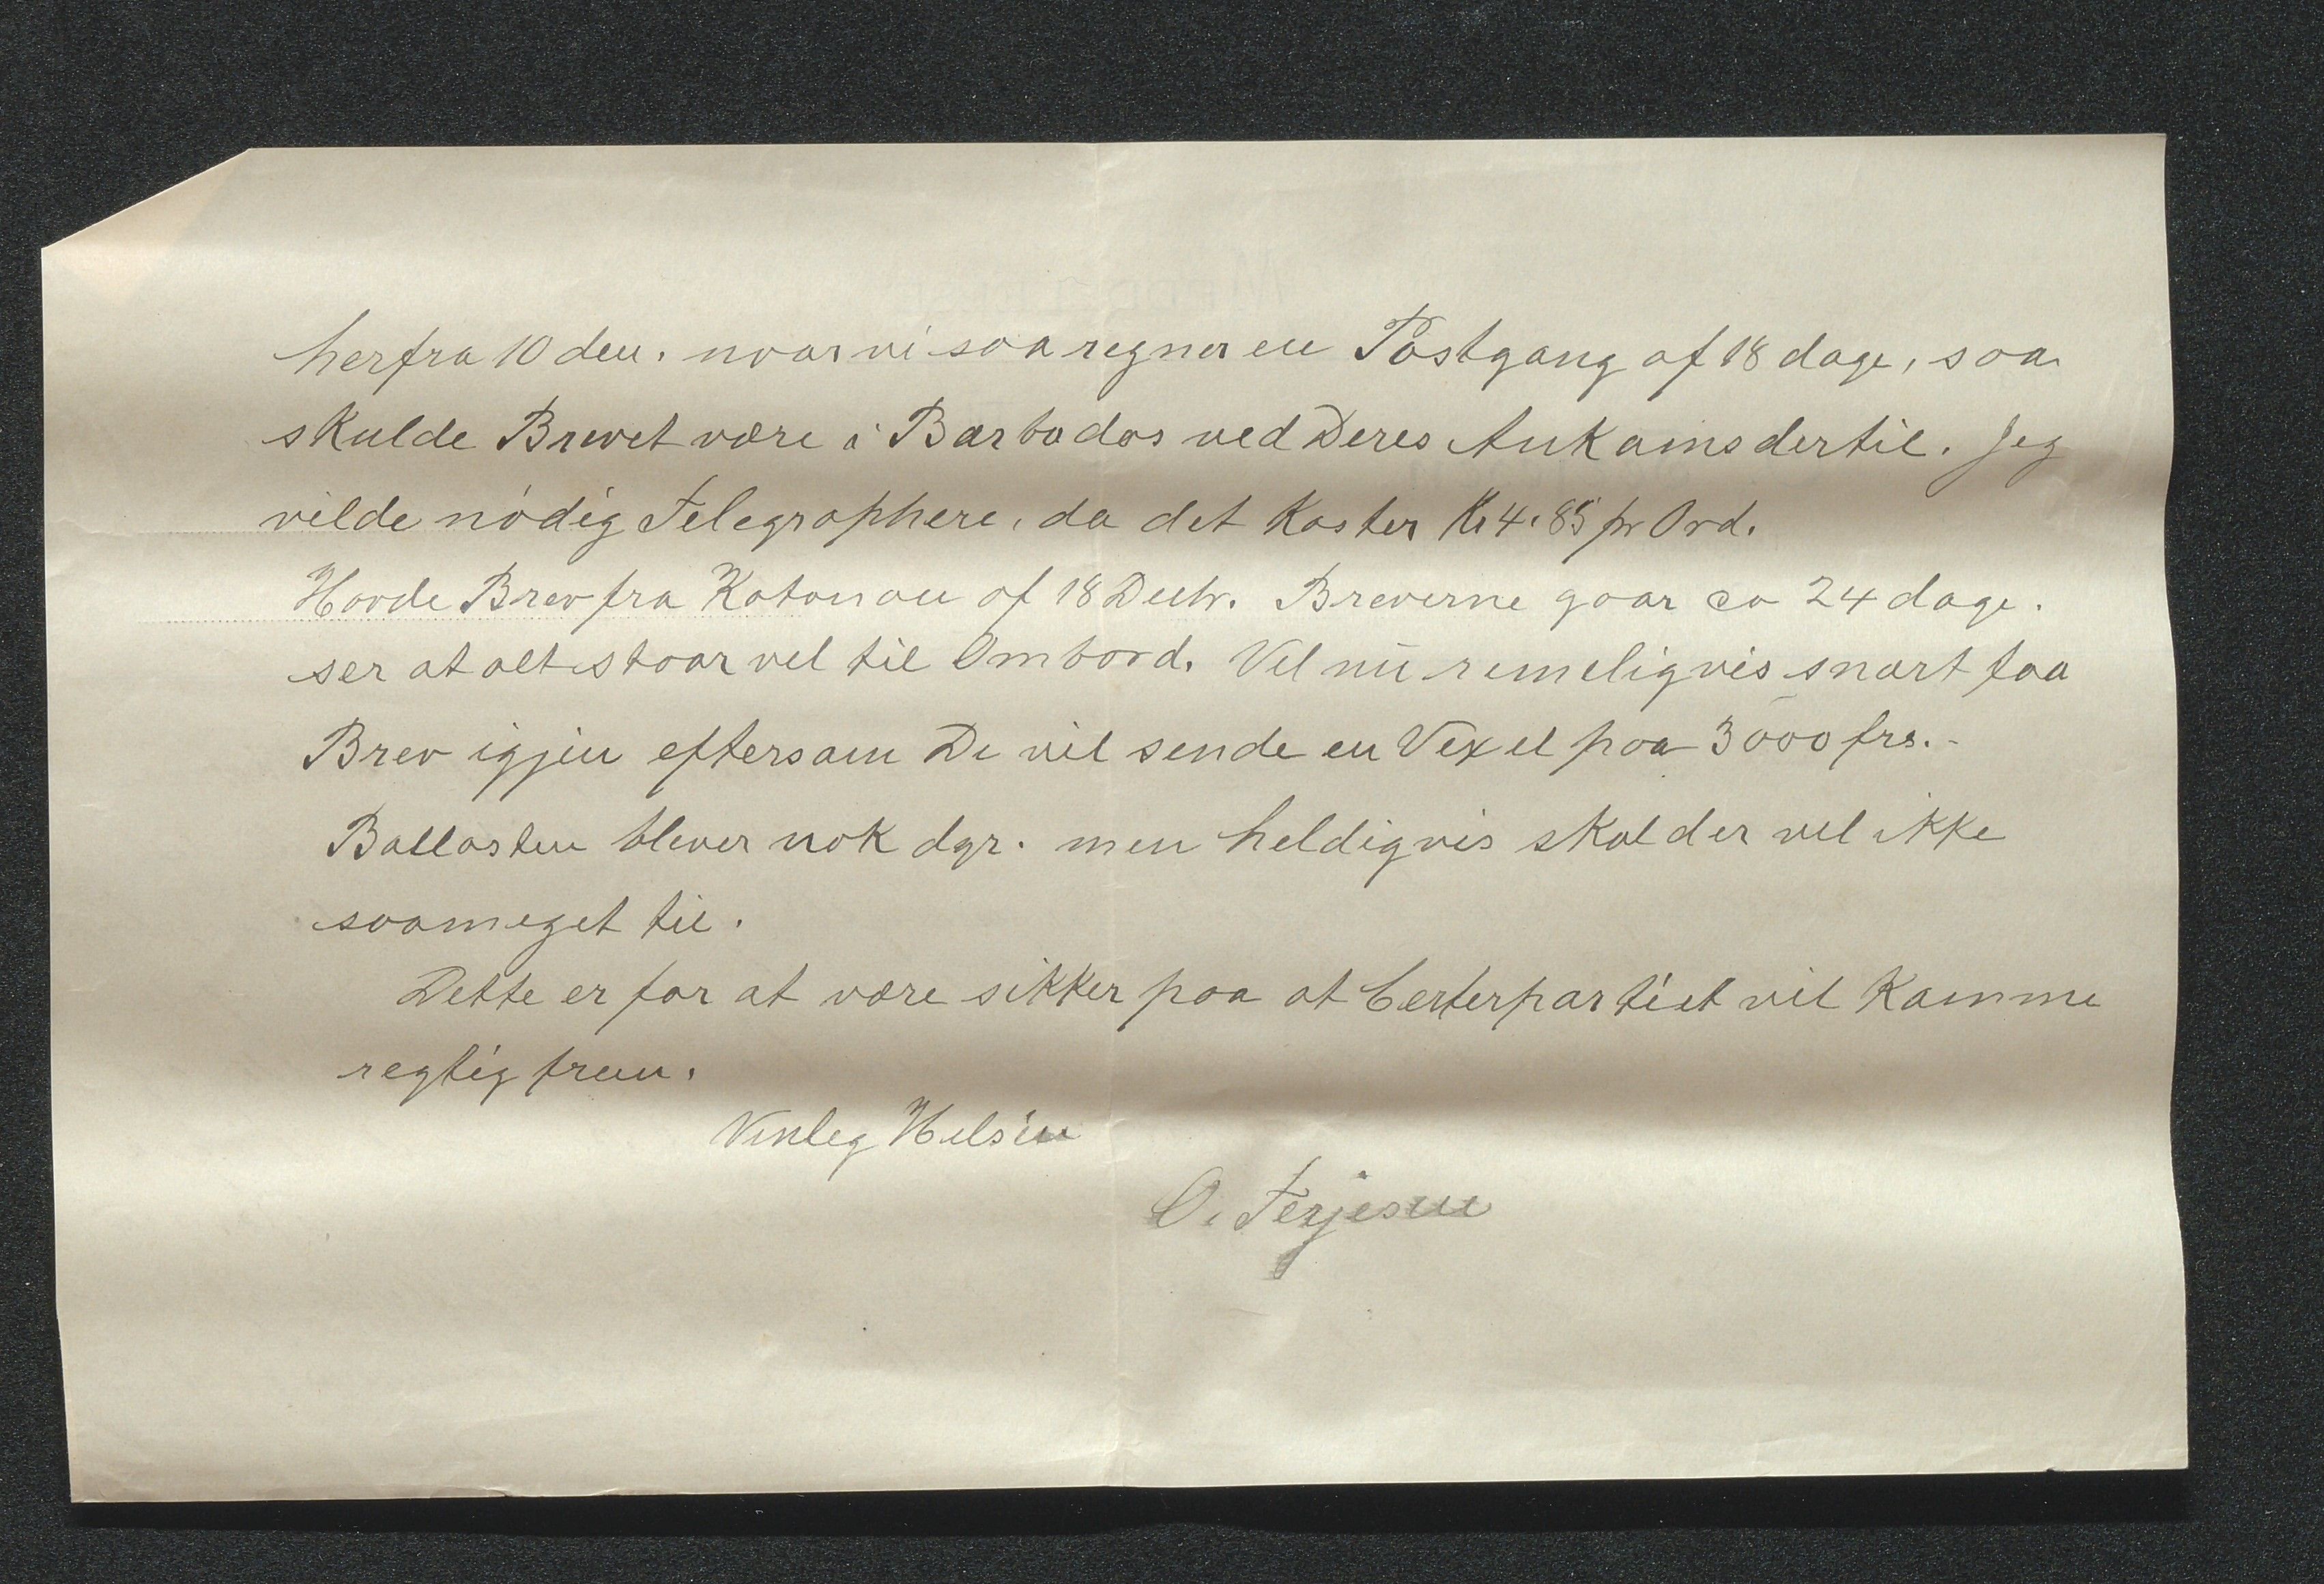 herfra 10 den. naar vi saa regner en Postgang af 18 dage, saa
skulde Brevet være i Barbados ved Deres Ankoms dertil. Jeg
vilde nødig Telegraphere, da det Koster Kr 4.85 pr Ord.
Havde Brev fra Kotonou af 18 Decbr. Breverne gaar ca 24 dage.
ser at alt staar vel til Ombord. Vil nu rimeligvis snart faa
Brev igjen eftersom De vil sende en Vexel paa 3000 frs.-
Ballasten bliver nok dyr. men heldigvis skal der vel ikke
saameget til.
Dette er for at være sikker paa at Certerpartiet vil Komme
regtig frem.
Venlig Hilsen
O. Terjesen